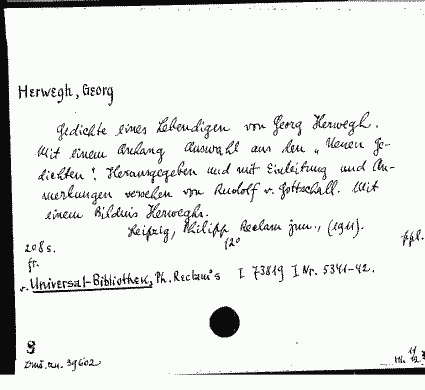 Herwegh, Georg
Gedichte eines Lebendigen von Georg Herwegh.
Mit einem Anhang Auswahl aus den „Neuen Ge-
dichten". Herausgegeben und mit Einleitung und An-
merkungen versehen von Rudolf v. Gottschall. Mit
einem Bildnis Herweghs.
Leipzig, Philipp Reclam jun., (1911).
208 s. 12° ppl.
fr.
v. Universal-Bibliothek, Ph. Reclam's I 73819 I Nr. 5341-42.
S
39602